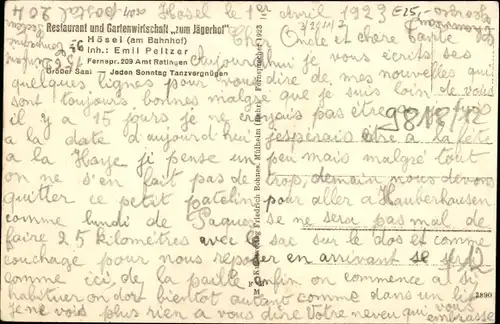 Hösel le 1er Avril 1923
Restaurant und Gartenwirtschaft „zum Jägerhof"
Hösel (am Bahnhof)
Inh.: Emil Peltzer
Fernspr. 209 Amt Ratingen
Großer Saal Jeden Sonntag Tanzvergnügen
Fernsprecher 1923
Friedrich Bohnes, Mülheim (Ruhr)
Chère Oncle et chère Tante
aujourd'hui je vous écris ces
quelques lignes pour vous dire de mes nouvelles qui
sont toujours bonnes malgré que je suis loin de vous
il y a 15 jours je ne croyais pas être
a la date d'aujourd'hui j'espérais être a la fête
a la Haye. je pense un peu mais malgré tout
on ne s'en fait pas de trop, demain nous devons
quitter ce petit patelin pour aller a Hauberhausen
comme lundi de Paques se ne sera pas mal de
faire 25 kilomètres avec le sac sur le dos et comme
couchage pour nous reposer en arrivant se sera
comme ici, de la paille enfin on commence a si
habituer on dort bientot autant comme dans un lit
je ne vois plus rien a vous dire Votre neveu qui vous
embrasse
9818/12
E25,-
204
2890